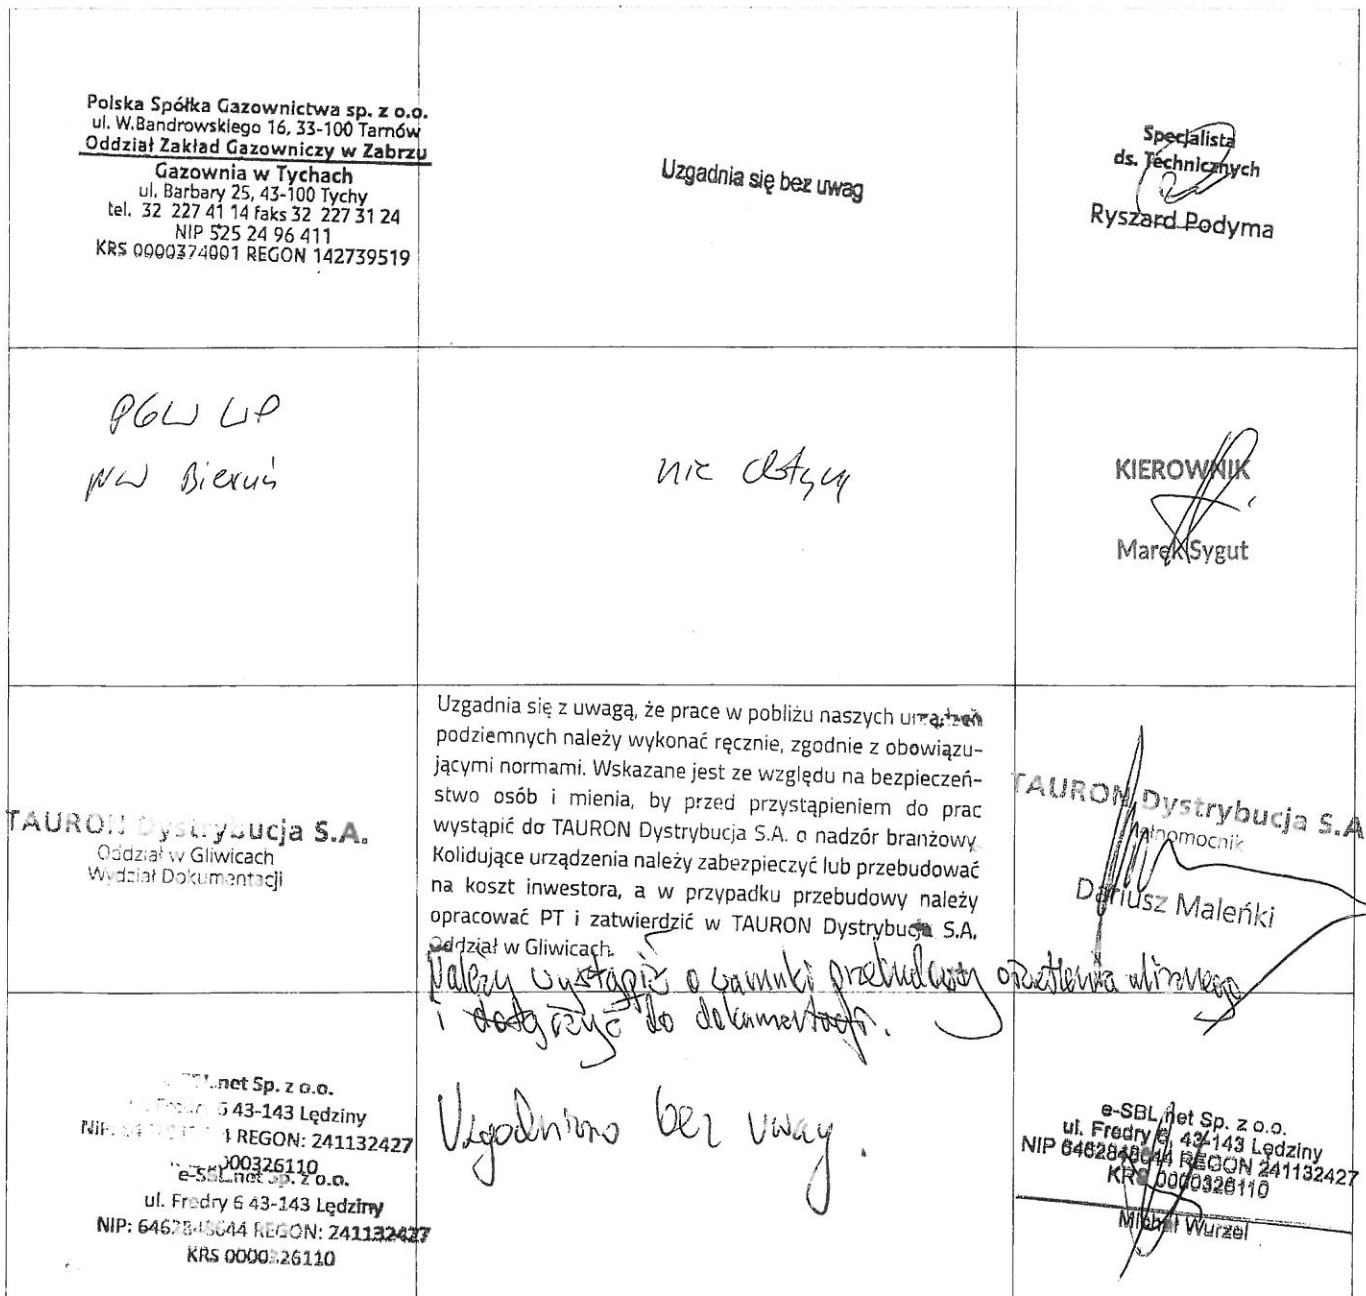 Polska Spółka Gazownictwa sp. z o.o.
ul. W.Bandrowskiego 16, 33-100 Tarnów
Oddział Zakład Gazowniczy w Zabrzu
Gazownia w Tychach
ul. Barbary 25, 43-100 Tychy
tel. 32 227 41 14 faks 32 227 31 24
NIP 525 24 96 411
KRS 0000374001 REGON 142739519
Uzgadnia się bez uwag
Specjalista
ds. Technicznych
Ryszard Podyma
PGW WP
NW Bieruń
nie dotyczy
KIEROWNIK
Marek Sygut
TAURON Dystrybucja S.A.
Oddział w Gliwicach
Wydział Dokumentacji
Uzgadnia się z uwagą, że prace w pobliżu naszych urządzeń
podziemnych należy wykonać ręcznie, zgodnie z obowiązu-
jącymi normami. Wskazane jest ze względu na bezpieczeń-
stwo osób i mienia, by przed przystąpieniem do prac
wystąpić do TAURON Dystrybucja S.A. o nadzór branżowy.
Kolidujące urządzenia należy zabezpieczyć lub przebudować
na koszt inwestora, a w przypadku przebudowy należy
opracować PT i zatwierdzić w TAURON Dystrybucja S.A.
Oddział w Gliwicach.
Należy wystąpić o warunki przebudowy oświetlenia ulicznego
i dołączyć do dokumentacji.
TAURON Dystrybucja S.A
Pełnomocnik
Dariusz Maleńki
.net Sp. z o.o.
6 43-143 Lędziny
REGON: 241132427
000326110
e-SBL.net Sp. z o.o.
ul. Fredry 6 43-143 Lędziny
NIP: 6462848644 REGON: 241132427
KRS 0000326110
Uzgodniono bez uwag.
e-SBL.net Sp. z o.o.
ul. Fredry 6, 43-143 Lędziny
NIP 6462848644 REGON 241132427
KRS 0000326110
Michał Wurzel